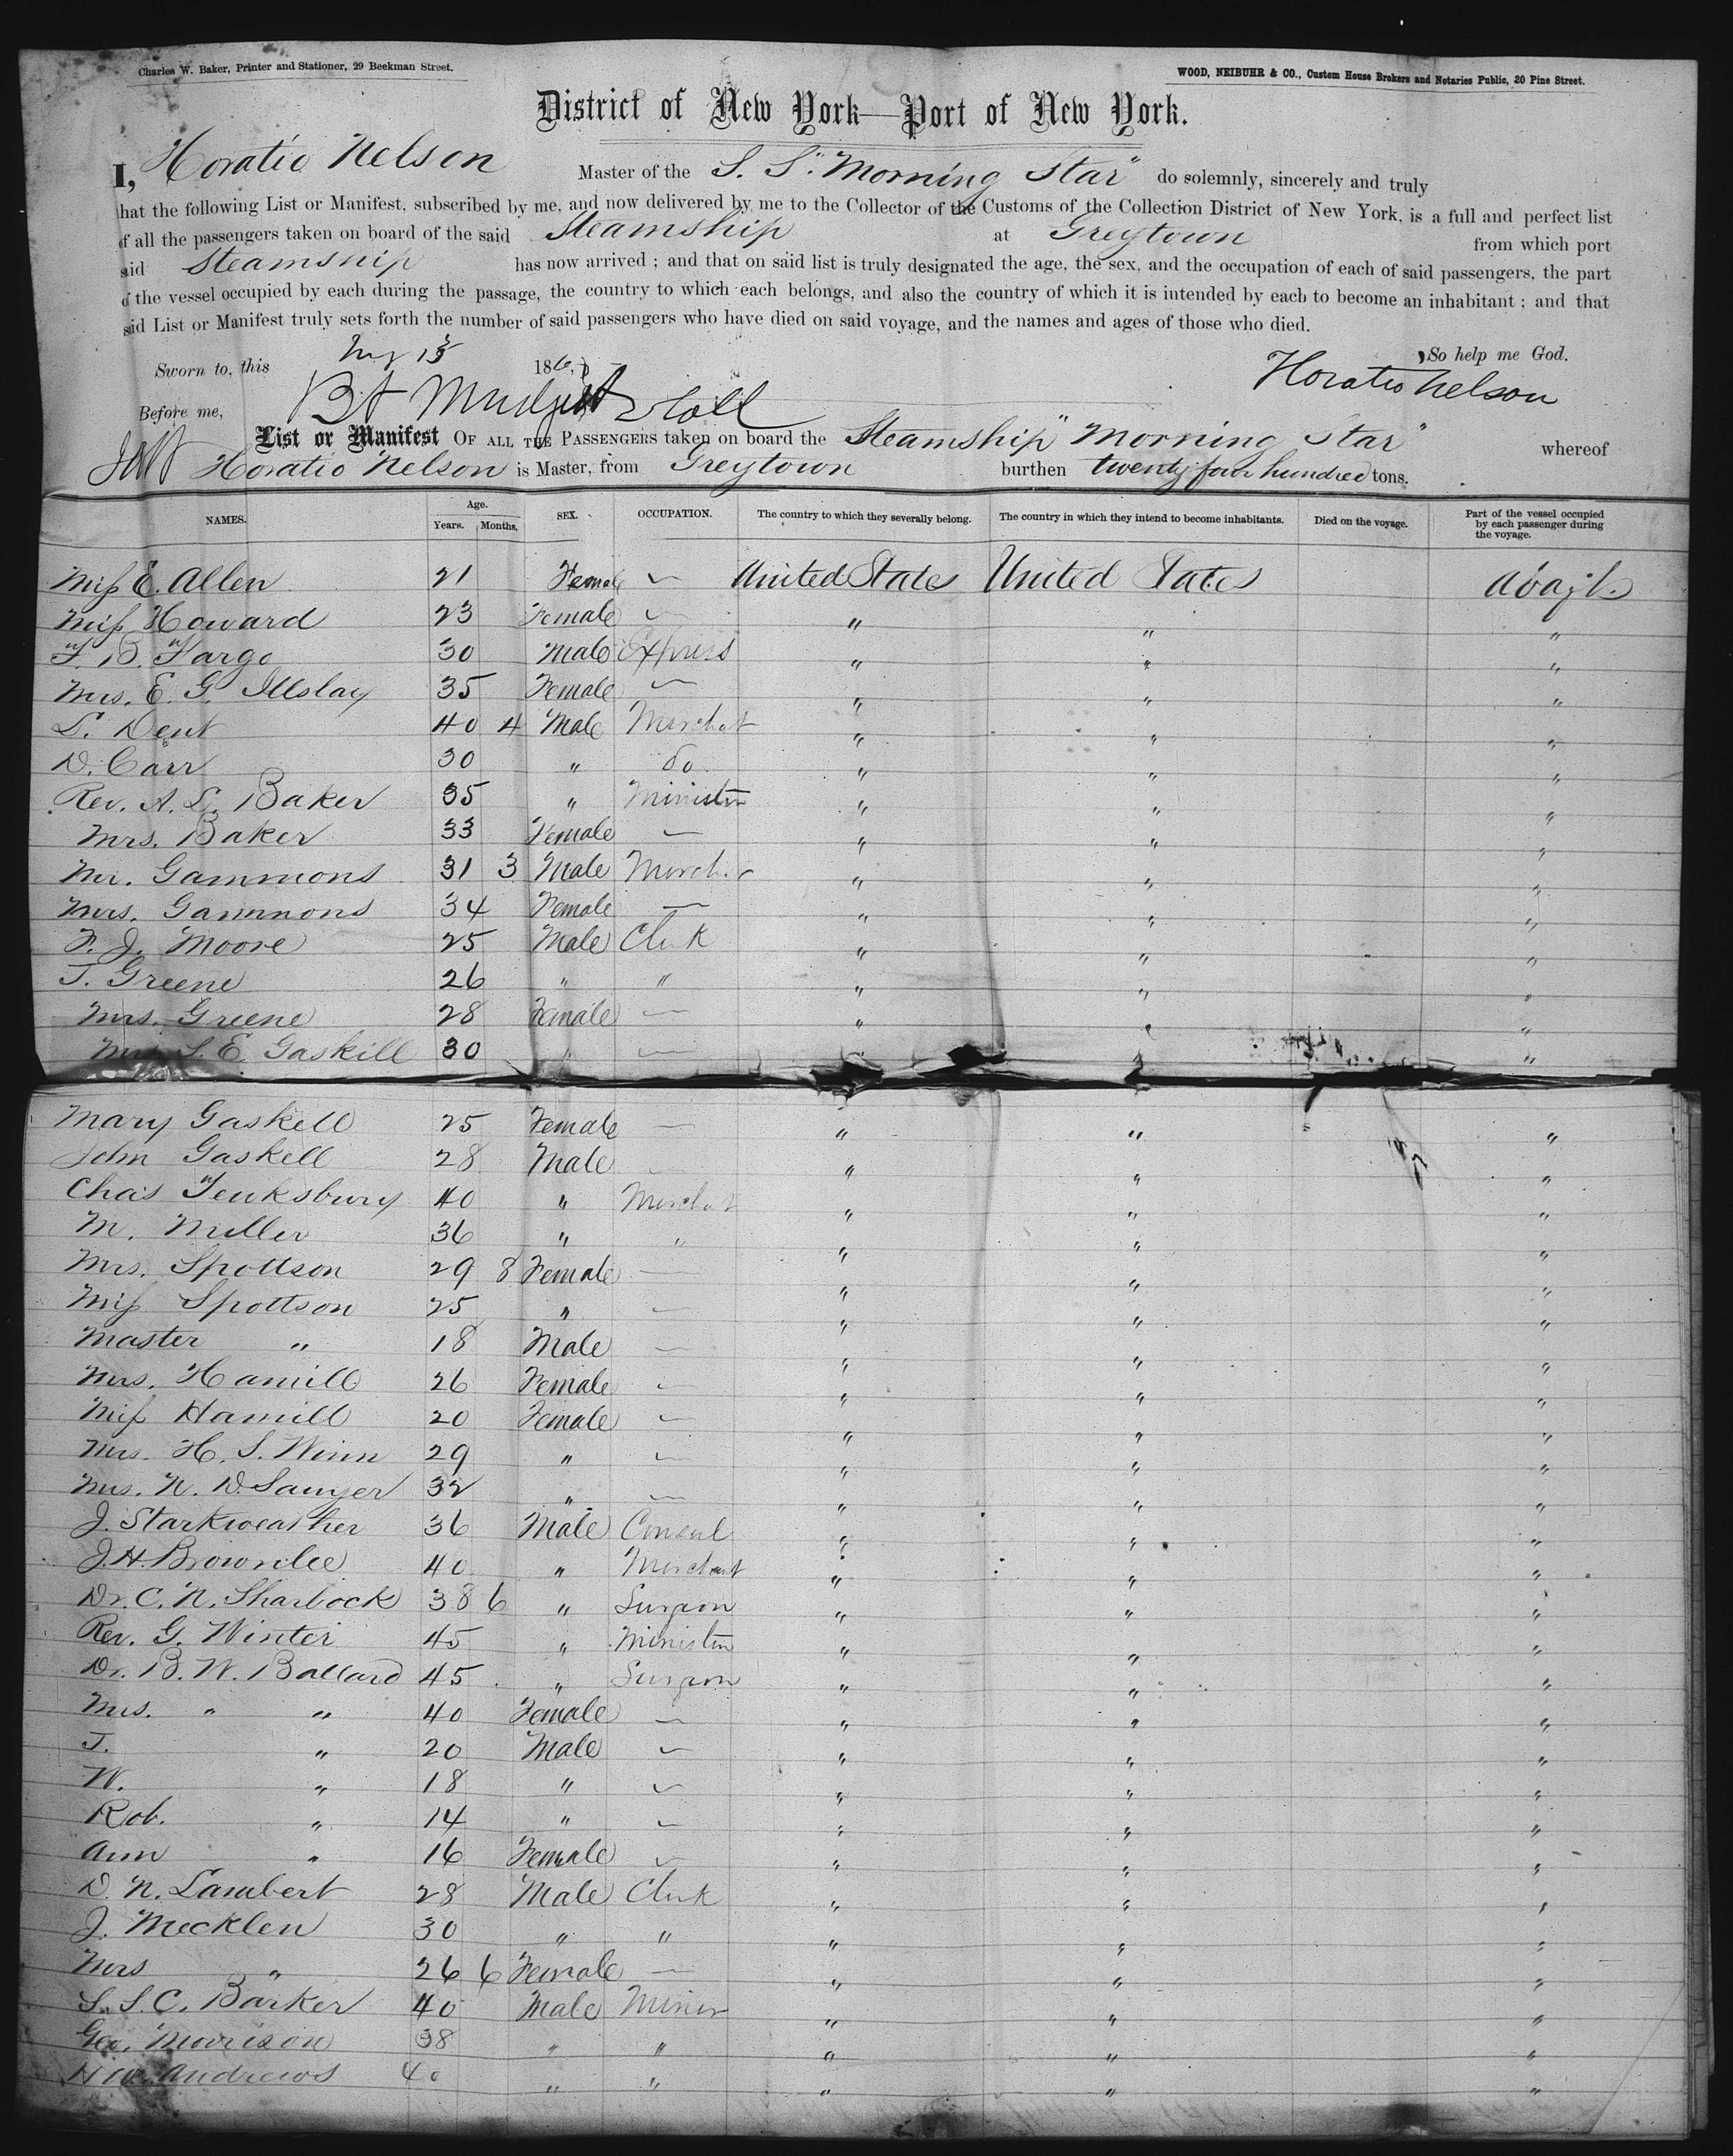 Charles W. Baker, Printer and Stationer, 29 Beekman Street.
WOOD, NEIBUHR & CO., Custom House Brokers and Notaries Public, 20 Pine Street.
District of New York—Port of New York.
I, Horatio Nelson Master of the S. S. "Morning Star" do solemnly, sincerely and truly
that the following List or Manifest, subscribed by me, and now delivered by me to the Collector of the Customs of the Collection District of New York, is a full and perfect list
of all the passengers taken on board of the said Steamship at Greytown from which port
said Steamship has now arrived ; and that on said list is truly designated the age, the sex, and the occupation of each of said passengers, the part
of the vessel occupied by each during the passage, the country to which each belongs, and also the country of which it is intended by each to become an inhabitant ; and that
said List or Manifest truly sets forth the number of said passengers who have died on said voyage, and the names and ages of those who died.
Sworn to, this 186 So help me God.
Before me, Horatio Nelson
List or Manifest OF ALL THE PASSENGERS taken on board the Steamship "Morning Star" whereof
Horatio Nelson is Master, from Greytown burthen twenty four hundred tons.
NAMES. Age. Years. Months. SEX. OCCUPATION. The country to which they severally belong. The country in which they intend to become inhabitants. Died on the voyage. Part of the vessel occupied by each passenger during the voyage.
Miss E. Allen 21 Female — United States United States
Miss Howard 23 Female — " " "
F. B. Fargo 30 Male Express " " "
Mrs. E. G. Illslay 35 Female — " " "
L. Dent 40 4 Male Merchat " " "
D. Carr 30 " do " " "
Rev. A. L. Baker 35 " Minister " " "
Mrs. Baker 33 Female — " " "
Mr. Gammons 31 3 Male Merch. " " "
Mrs. Gammons 34 Female — " " "
F. J. Moore 25 Male Clerk " " "
T. Greene 26 " " " " "
Mrs. Greene 28 Female — " " "
Mrs S. E. Gaskill 30 " — " " "
Mary Gaskell 25 Female — " " "
John Gaskell 28 Male — " " "
Chas Tewksbury 40 " Merchat " " "
M. Miller 36 " " " " "
Mrs. Spottson 29 8 Female — " " "
Miss Spottson 25 " — " " "
Master " 18 Male — " " "
Mrs. Hamill 26 Female — " " "
Miss Hamill 20 Female — " " "
Mrs. H. S. Winn 29 " — " " "
Mrs. N. D. Sawyer 32 " — " " "
J. Starkweather 36 Male Consul " " "
J. H. Brownlee 40 " Merchant " " "
Dr. C. N. Sharbock 38 6 " Surgeon " " "
Rev. G. Winter 45 " Minister " " "
Dr. B. W. Ballard 45 " Surgeon " " "
Mrs. " " 40 Female — " " "
T. " 20 Male — " " "
W. " 18 " — " " "
Rob. " 14 " — " " "
Ann " 16 Female — " " "
D. N. Lambert 28 Male Clerk " " "
J. Mecklen 30 " " " " "
Mrs " 26 6 Female — " " "
S. S. C. Barker 40 Male Miner " " "
Geo. Morrison 38 " " " " "
Andrews 40 " " " " "